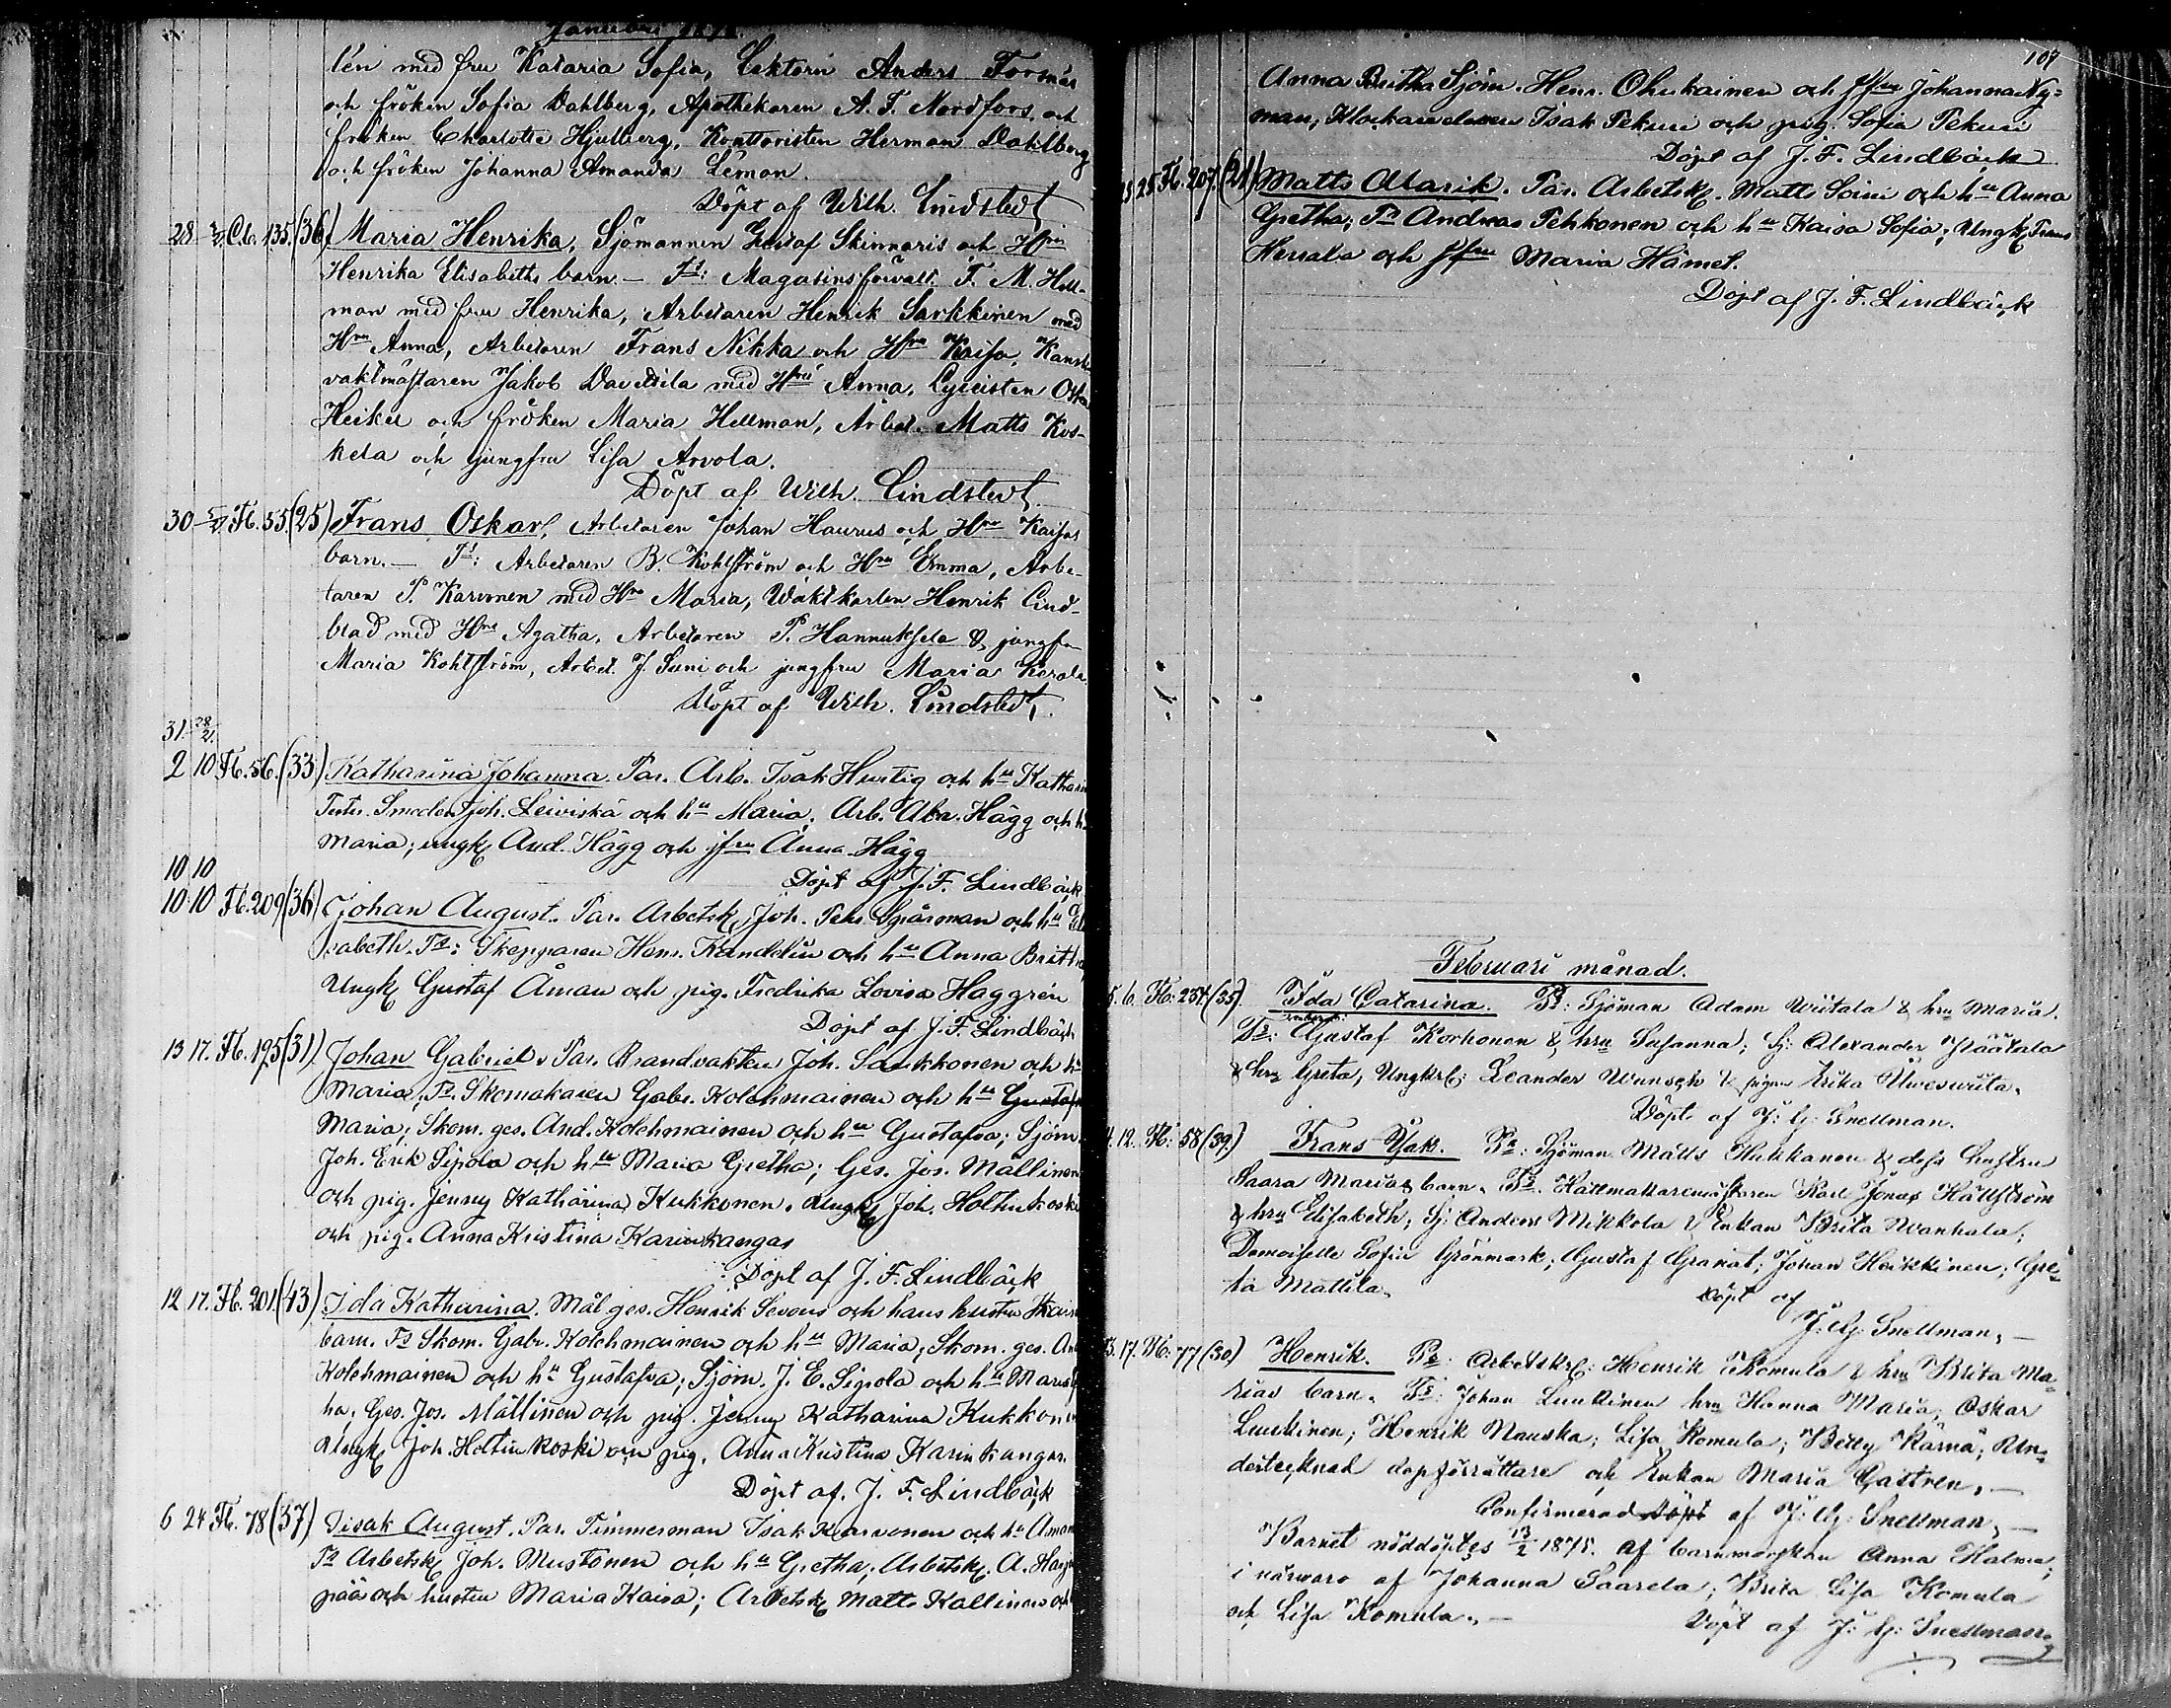 Januari 187
lén med fru Kataria Sofia, Lektorn Anders Tornéer
och fröken Sofia Dahlberg, Apothekaren A. F. Nordfors, och
fröken Charlotte Hjelberg, Kontoristen Herman Dahlberg
och fröken Johanna Amanda Léman.
Döpt af Wilh. Lindstedt
28 Cb. 135. (36) Maria Henrika, Sjömannen Gustaf Skinnaris och Hru
Henrika Elisabeths barn. – Ts: Magasinsförvalt. F. M. Hell-
man med fru Henrika, Arbetaren Henrik Sarkkinen med
Hru Anna, Arbetaren Frans Nikka och Hru Kaisa, Kansli
vaktmästaren Jakob Davidila med Hru Anna, Lyceisten
Heikel och fröken Maria Hellman, Arbet. Matts Kos-
kela och jungfru Lisa Arvola.
Döpt af Wilh. Lindstedt
30 Fb. 55. (25) Frans Oskar, Arbetaren Johan Haurus och Hru Kaisas
barn. – Ts: Arbetaren B. Kohlström och Hru Emma, Arbe-
taren P. Karvonen med Hru Maria, Waktkarlen Henrik Lind-
blad med Hru Agatha, Arbetaren P. Hannuksela & jungfru
Maria Kohlström, Arbet. J. Suni och jungfru Maria Kerola.
Döpt af Wilh. Lindstedt.
31. 28/21.
2 10 Fb. 56. (33) Katharina Johanna. Par. Arb. Isak Hurtig och hu Katharin
Testes. Smeden Joh. Leiviskä och hu Maria; Arb. Abr. Hägg och h
Maria; ungk. And. Hägg och jfru Anna Hägg
10 10
Döpt af J. F. Lindbäck
10 10 Fb. 209 (36) Johan August. Par. Arbetsk. Joh. Petr. Sparman och hu El
sabeth. Ts: Skepparen Henr. Kandelin och hu Anna Britha
Ungk. Gustaf Åman och pig. Fredrika Lovisa Haggrén
Döpt af J. F. Lindbäck
13 17. Fb. 195 (31) Johan Gabriel. Par. Brandvakten Joh. Saukkonen och h
Maria; Ts. Skomakaren Gabr. Kolehmainen och hu Gustafv
Maria; Skom. ges. And. Kolehmainen och hu Gustafva; Sjöm.
Joh. Erik Sipola och hu Maria Gretha; Ges. Jos. Mällinen
och pig. Jenny Katharina Kukkonen. Ungk. Joh. Holtinkoski
och pig. Anna Kristina Karinkangas
Döpt af J. F. Lindbäck
12 17. Fb. 201 (43) Ida Katharina. Mål. ges. Henrik Sevons och hans hustru
barn. Ts Skom. Gabr. Kolehmainen och hu Maria; Skom. ges. And
Kolehmainen och hu Gustafva; Sjöm. J. E. Sipola och hu Maria
ha; Ges. Jos. Mällinen och pig. Jenny Katharina Kukkonen
Ungk. Joh. Holtinkoski och pig. Anna Kristina Karinkangas.
Döpt af. J. F. Lindbäck
6 24 Fb. 78 (37) Isak August. Par. Timmerman Isak Karvonen och hu Aman
Ts Arbetsk. Joh. Mustonen och hu Gretha; Arbetsk. A. Harju
pää och hustru Maria Kaisa; Arbetsk. Matts Kallinen och
107
Anna Britha Sjöm. Henr. Ohukainen och jfru Johanna Ny-
man; Klockareeleven Isak Pekuri och pig. Sofia Pekuri
Döpt af J. F. Lindbäck
25 25 Fb. 207. (21) Matts Alarik. Par. Arbetsk. Matts Soini och hu Anna
Gretha; Ts Andreas Pehkonen och hu Kaisa Sofia; Ungk. Frans
Hersala och jfru Maria Hämel.
Döpt af J. F. Lindbäck
Februari månad.
5. 6. Fb: 254 (35) Ida Catarina. Ps: Sjöman Adam Wiitala & hru Maria.
Ts: Gustaf Korhonen & hru Susanna; Sj: Alexander Päätalo
& hru Greta, Ungkrl: Leander Wunsch & pigan Erika Ulweswiita.
Döpt af J: G: Snellman.
4. 12. Fb: 58 (39.) Frans Isak. Ps: Sjöman Matts Hukkanen & dess hustru
Saara Marias barn. Ts. Hattmakaremästaren Karl Jonas Hällström
& hru Elisabeth; Sj: Anders Mikkola & Enkan Brita Wanhala;
Demoiselle Sofia Grönmark; Gustaf Granat; Johan Heikkinen; Gre-
ta Mattila.
Döpt af
J: G: Snellman. –
13. 17. Fb: 77 (30) Henrik. Ps: Arbetskrl: Henrik Komula & hru Brita Ma-
rias barn. Ts: Johan Luukinen hru Hanna Maria; Oskar
Luukinen; Henrik Nauska; Lisa Komula; Betty Kärnä; Un-
dertecknad dopförrättare och Enkan Maria Castren. –
Confirmerad Döpt af J: G: Snellman. –
Barnet nöddöptes 13/2 1875. af barnmorskan Anna Halmia;
i närvaro af Johanna Saarela; Brita Lisa Komula
och Lisa Komula. –
Döpt af J: G: Snellman.